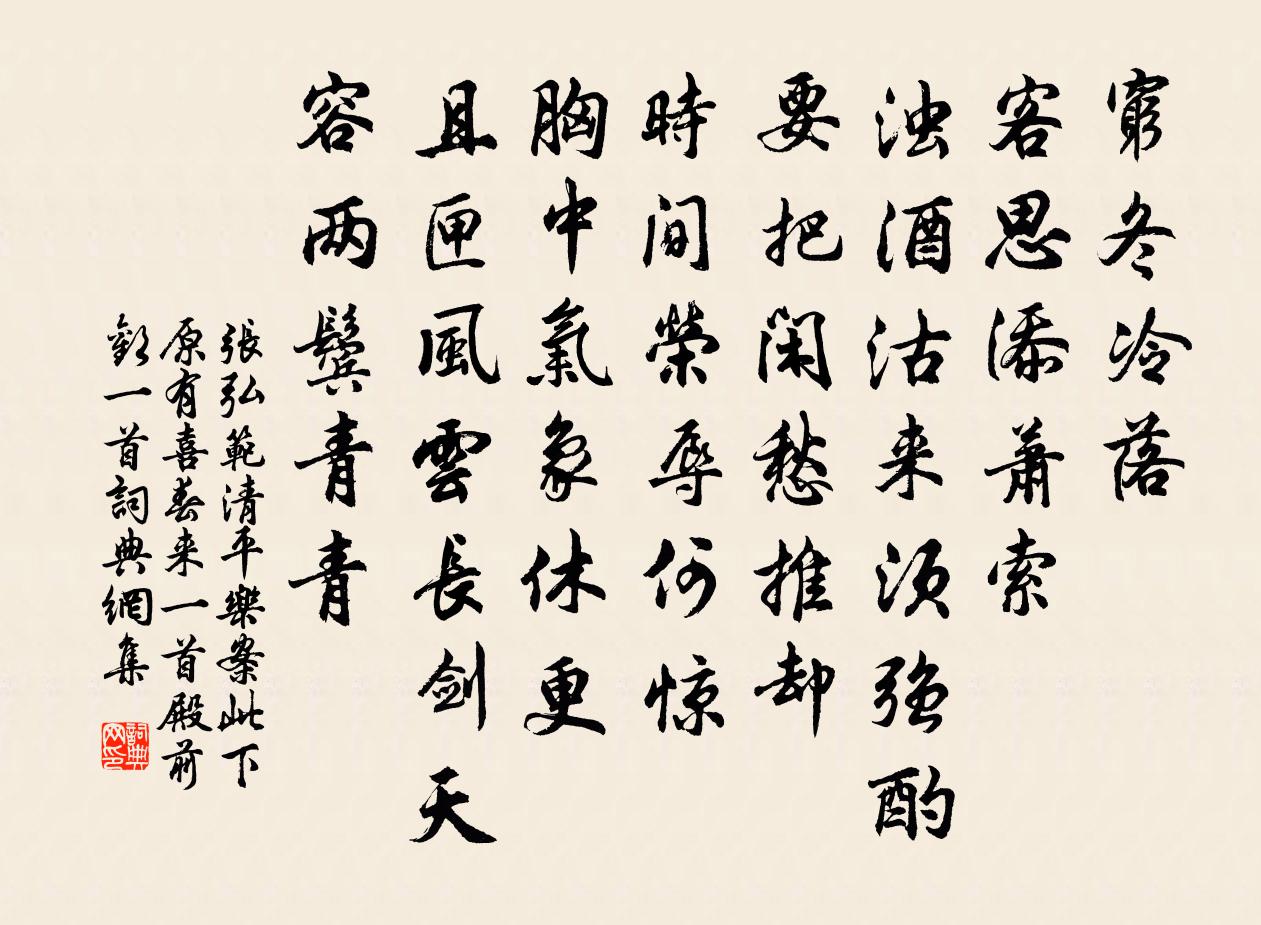 窮冬冷落
客思添蕭索
浊酒沽来須強酌
要把閑愁推却
時間榮辱何惊
胸中氣象休更
且匣風雲長剑天
容两鬓青青
張弘範清平樂案此下
原有喜春来一首殿前
歡一首詞典網集
詞典网印